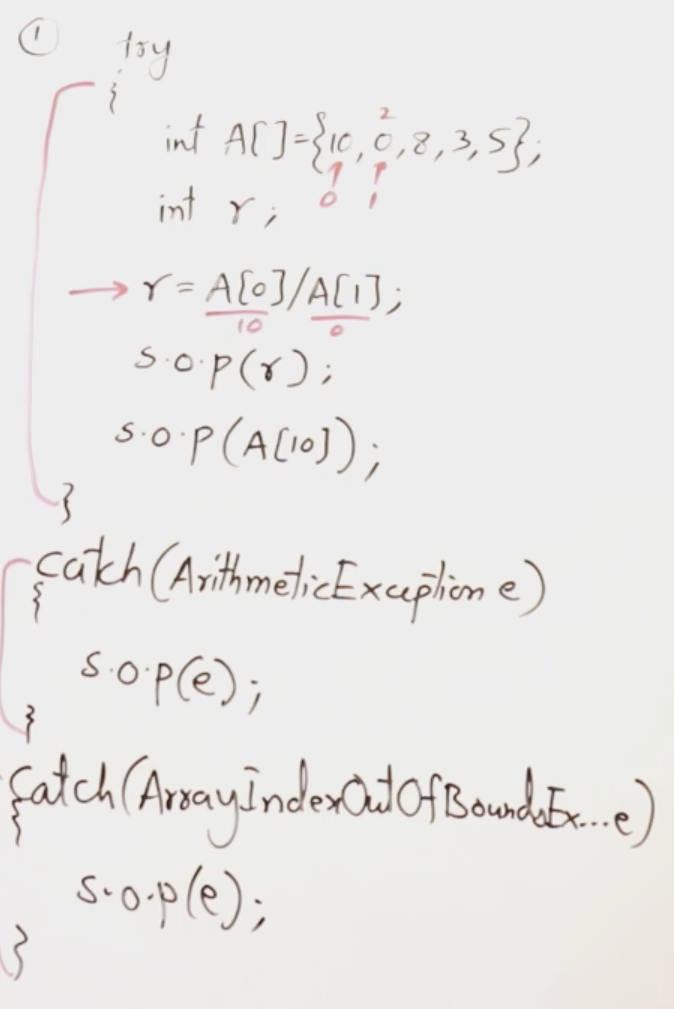 ① try
{
2
int A[]={10,0,8,3,5};
0 1
int r;
→ r = A[0]/A[1];
10 0
S.O.P(r);
S.O.P(A[10]);
}
catch(ArithmeticException e)
{
S.O.P(e);
}
catch(ArrayIndexOutOfBoundsEx...e)
{
S.O.P(e);
}